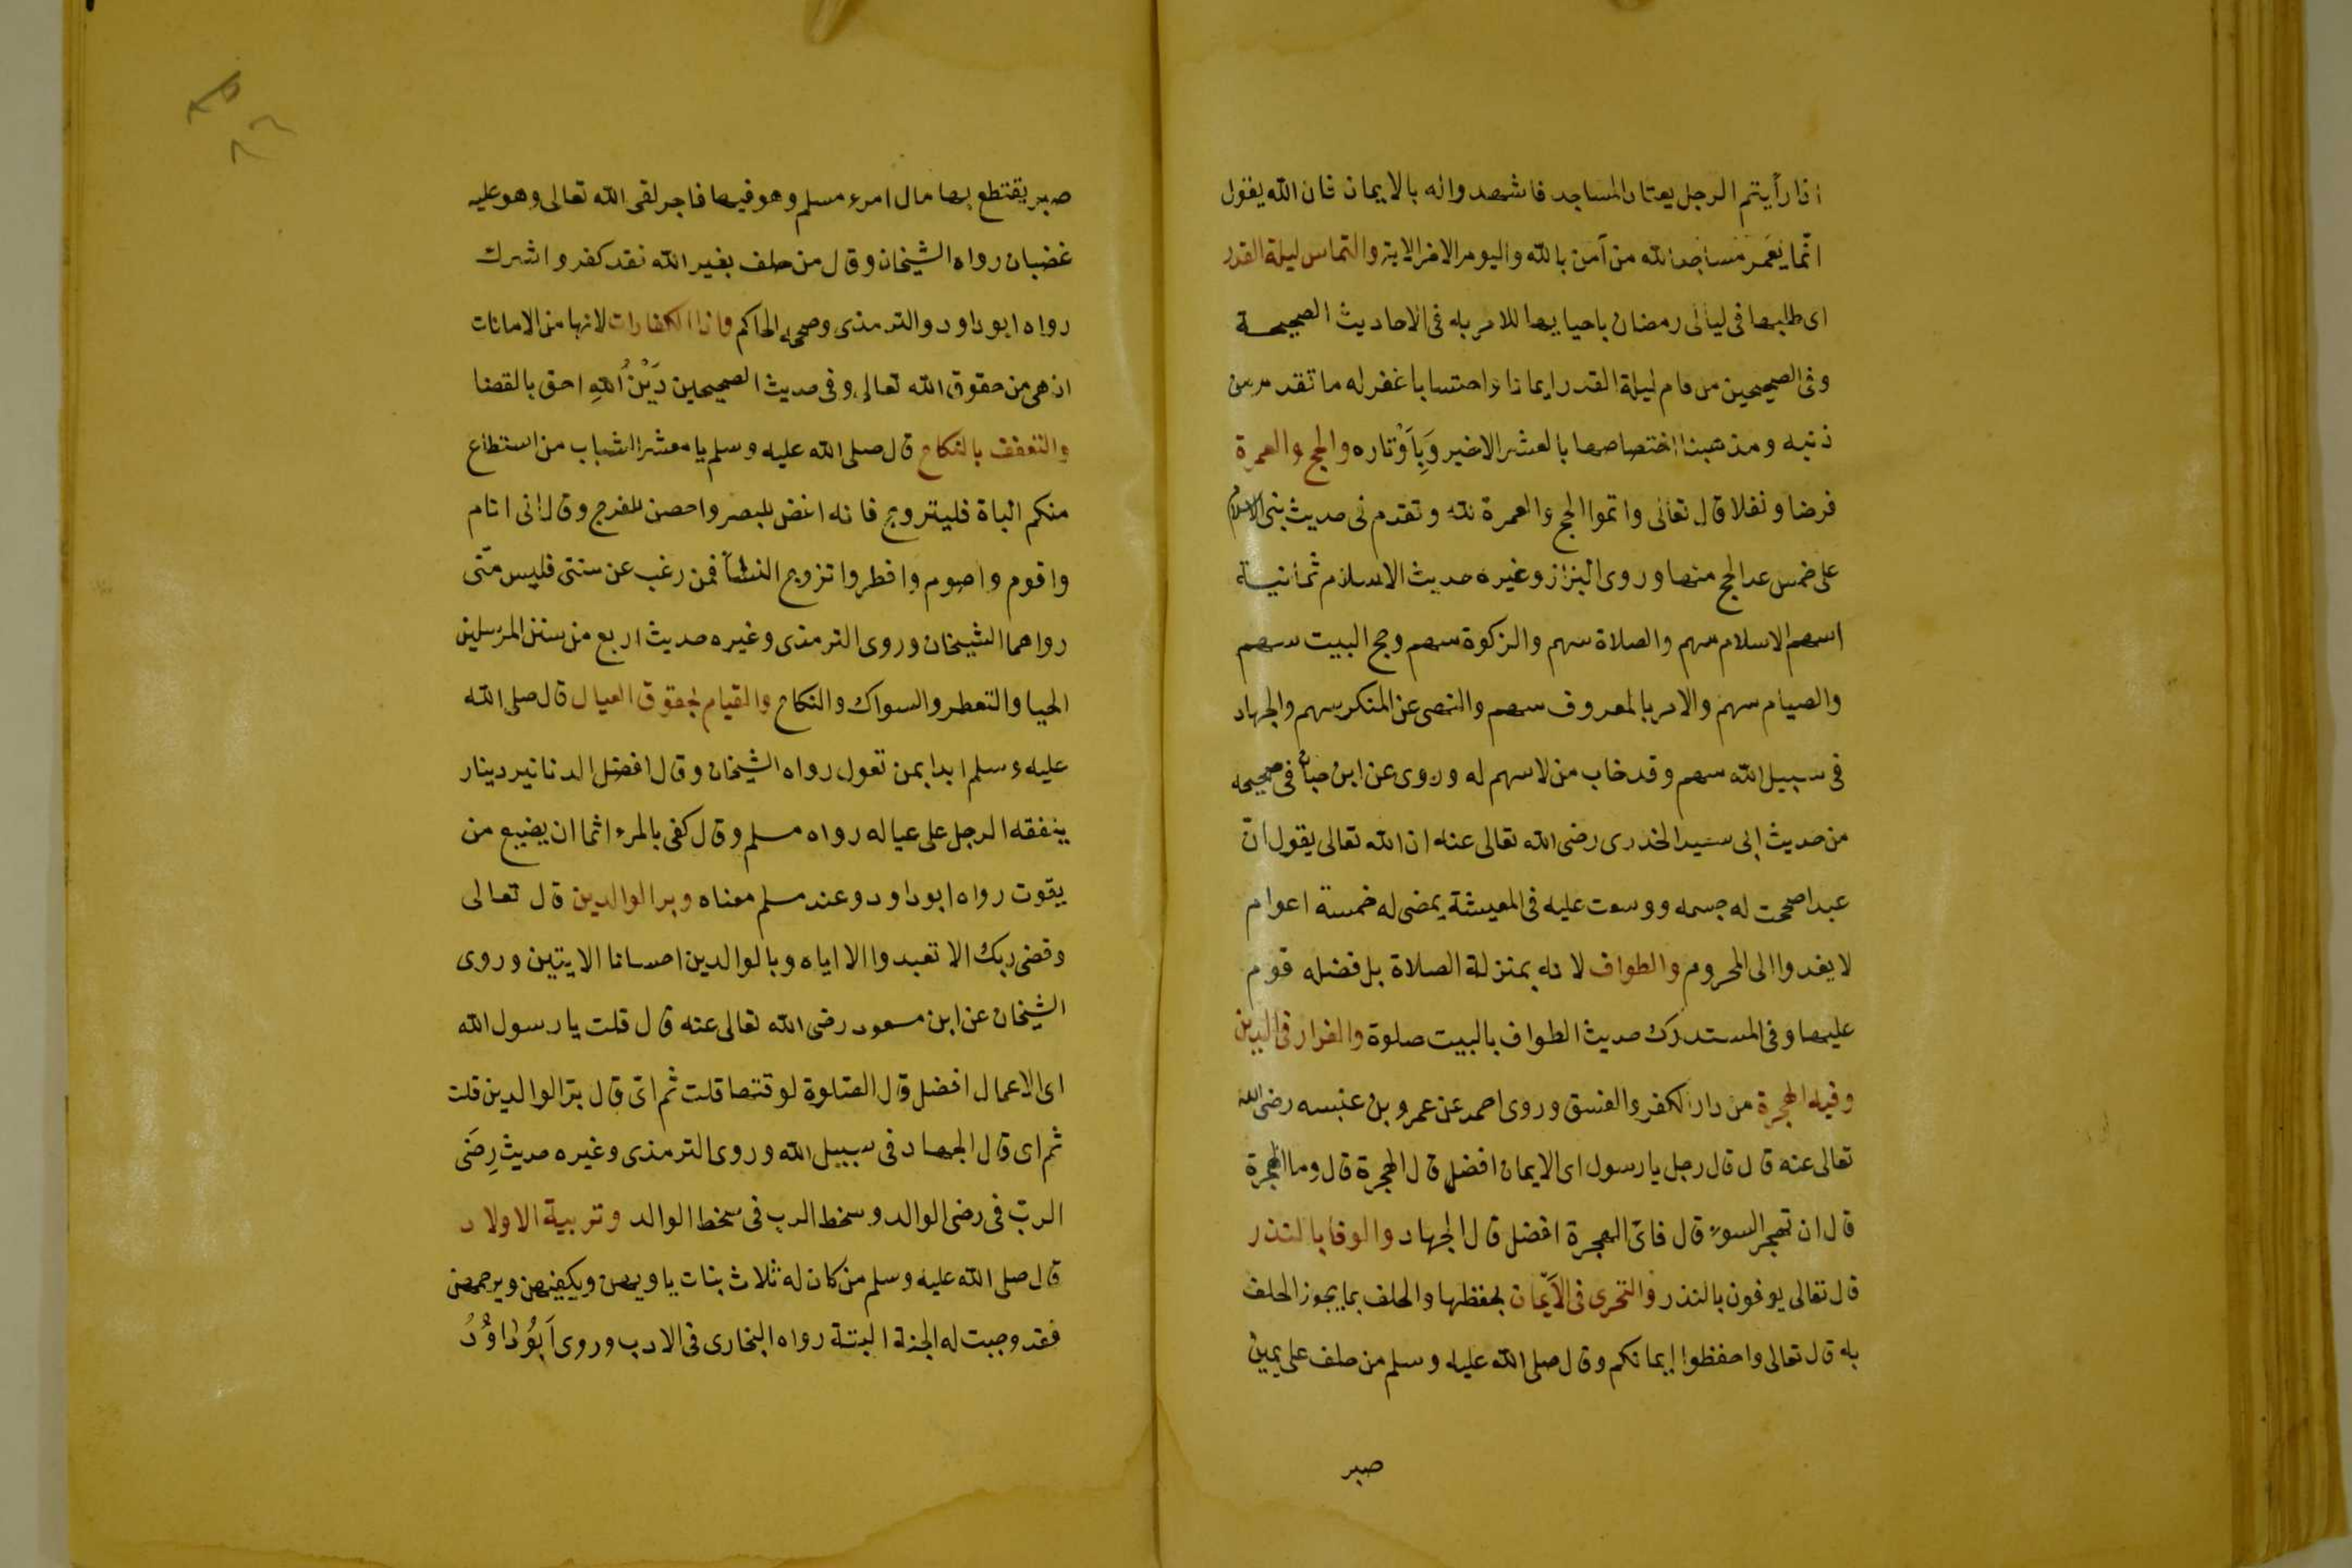 اذا رأيتم الرجل يعتاد المساجد فاشهدوا له بالايمان فان الله يقول
انّما يَعمَر مساجد الله من آمن بالله واليوم الاخر الاية والتماس ليلة القدر
اى طلبها فى ليالى رمضان باحيايها للامر به فى الاحاديث الصحيحة
وفى الصحيحين من قام ليلة القدر ايمانا واحتسابا غفر له ما تقدم من
ذنبه ومذهبنا اختصاصها بالعشر الاخير وَبِاَوْتاره والحج والعمرة
فرضا ونفلا قال تعالى واتموا الحج والعمرة لله وتقدم فى حديث بنى الاسلام
على خمس عد الحج منها وروى البزاز وغيره حديث الاسلام ثمانية
اسهم الاسلام سهم والصلاة سهم والزكوة سهم وحج البيت سهم
والصيام سهم والامر بالمعروف سهم والنهى عن المنكر سهم والجهاد
فى سبيل الله سهم وقد خاب من لا سهم له وروى عن ابن حبان فى صحيحه
من حديث ابى سعيد الخدرى رضى الله تعالى عنه ان الله تعالى يقول انّ
عبدا صححت له جسمه ووسعت عليه فى المعيشة يمضى له خمسة اعوام
لا يغدوا الى المحروم والطواف لانه بمنزلة الصلاة بل فضله قوم
عليها وفى المستدرك حديث الطواف بالبيت صلوة والفرار فى الدين
وفيه الهجرة من دار الكفر والفسق وروى احمد عن عمرو بن عنبسه رضى الله
تعالى عنه قال قال رجل يا رسول اى الايمان افضل قال الهجرة قال وما الهجرة
قال ان تهجر السوء قال فاىّ الهجرة افضل قال الجهاد والوفا بالنذر
قال تعالى يوفون بالنذر والتحرى فى الاَيْمان بحفظها والحلف بما يجوز الحلف
به قال تعالى واحفظوا ايمانكم وقال صلى الله عليه وسلم من حلف على يمين
صبر
صبر يقتطع بها مال امرء مسلم وهو فيها فاجر لقى الله تعالى وهو عليه
غضبان رواه الشيخان وقال من حلف بغير الله فقد كفر واشرك
رواه ابو داود والترمذى وصححه الحاكم وادا الكفارات لانها من الامانات
اذ هى من حقوق الله تعالى وفى حديث الصحيحين دَيْنُ اللهِ احق بالقضا
والتعفف بالنكاح قال صلى الله عليه وسلم يا معشر الشباب من استطاع
منكم الباة فليتزوج فانه اغض للبصر واحصن للفرج وقال انى انام
واقوم واصوم وافطر واتزوج النسأ فمن رغب عن سنتى فليس منّى
رواهما الشيخان وروى الترمذى وغيره حديث اربع من سنن المرسلين
الحيا والتعطر والسواك والنكاح والقيام لحقوق العيال قال صلى الله
عليه وسلم ابدا بمن تعول رواه الشيخان وقال افضل الدنانير دينار
ينفقه الرجل على عياله رواه مسلم وقال كفى بالمرء اثما ان يضيع من
يقوت رواه ابو داود وعند مسلم معناه وبر الوالدين قال تعالى
وقضى ربك الا تعبدوا الا اياه وبالوالدين احسانا الايتين وروى
الشيخان عن ابن مسعود رضى الله تعالى عنه قال قلت يا رسول الله
اى الاعمال افضل قال الصّلوة لوقتها قلت ثم اىّ قال برّ الوالدين قلت
ثم اى قال الجهاد فى سبيل الله وروى الترمذى وغيره حديث رِضَى
الربّ فى رضى الوالد وسخط الرب فى سخط الوالد وتربية الاولاد
قال صلى الله عليه وسلم من كان له ثلاث بنات ياويهن ويكفيهن ويرحمهن
فقد وجبت له الجنة البتة رواه البخارى فى الادب وروى اَبُو دَاوُدُ